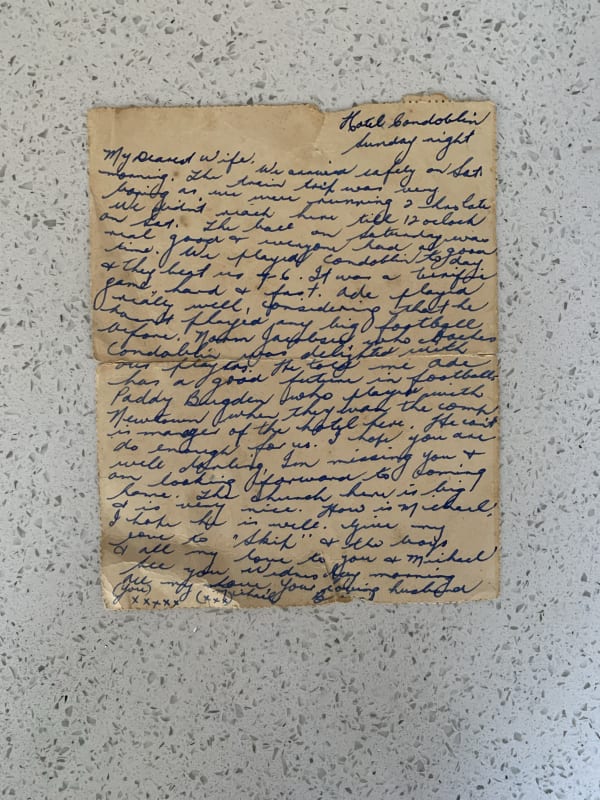 Hotel Condoblin
Sunday night
My Dearest Wife,
We arrived safely on Sat.
morning. The train trip was very
boring as we were running 2 hrs late
We didn't reach here till 12 oclock
on Sat. The ball on Saturday was
real good & everyone had a good
time. We played Condoblin to day
& they beat us 9-6. It was a terrific
game, hard & fast. Ade played
really well, considering that he
hasn't played any big football
before. Norm Jacobsen, who coaches
Condoblin was delighted with
our players. He told me Ade
has a good future in football.
Paddy Bugden who played with
Newtown when they won the comp.
is manager of the hotel here. He can't
do enough for us. I hope you are
well darling, Im missing you &
am looking forward to coming
home. The church here is big
& is very nice. How is Michael
I hope he is well. Give my
love to "Skip" & the boys
& all my love to you & Michael
See you Wednesday morning
All my love Your loving husband
(You) xxxxx (xxx)